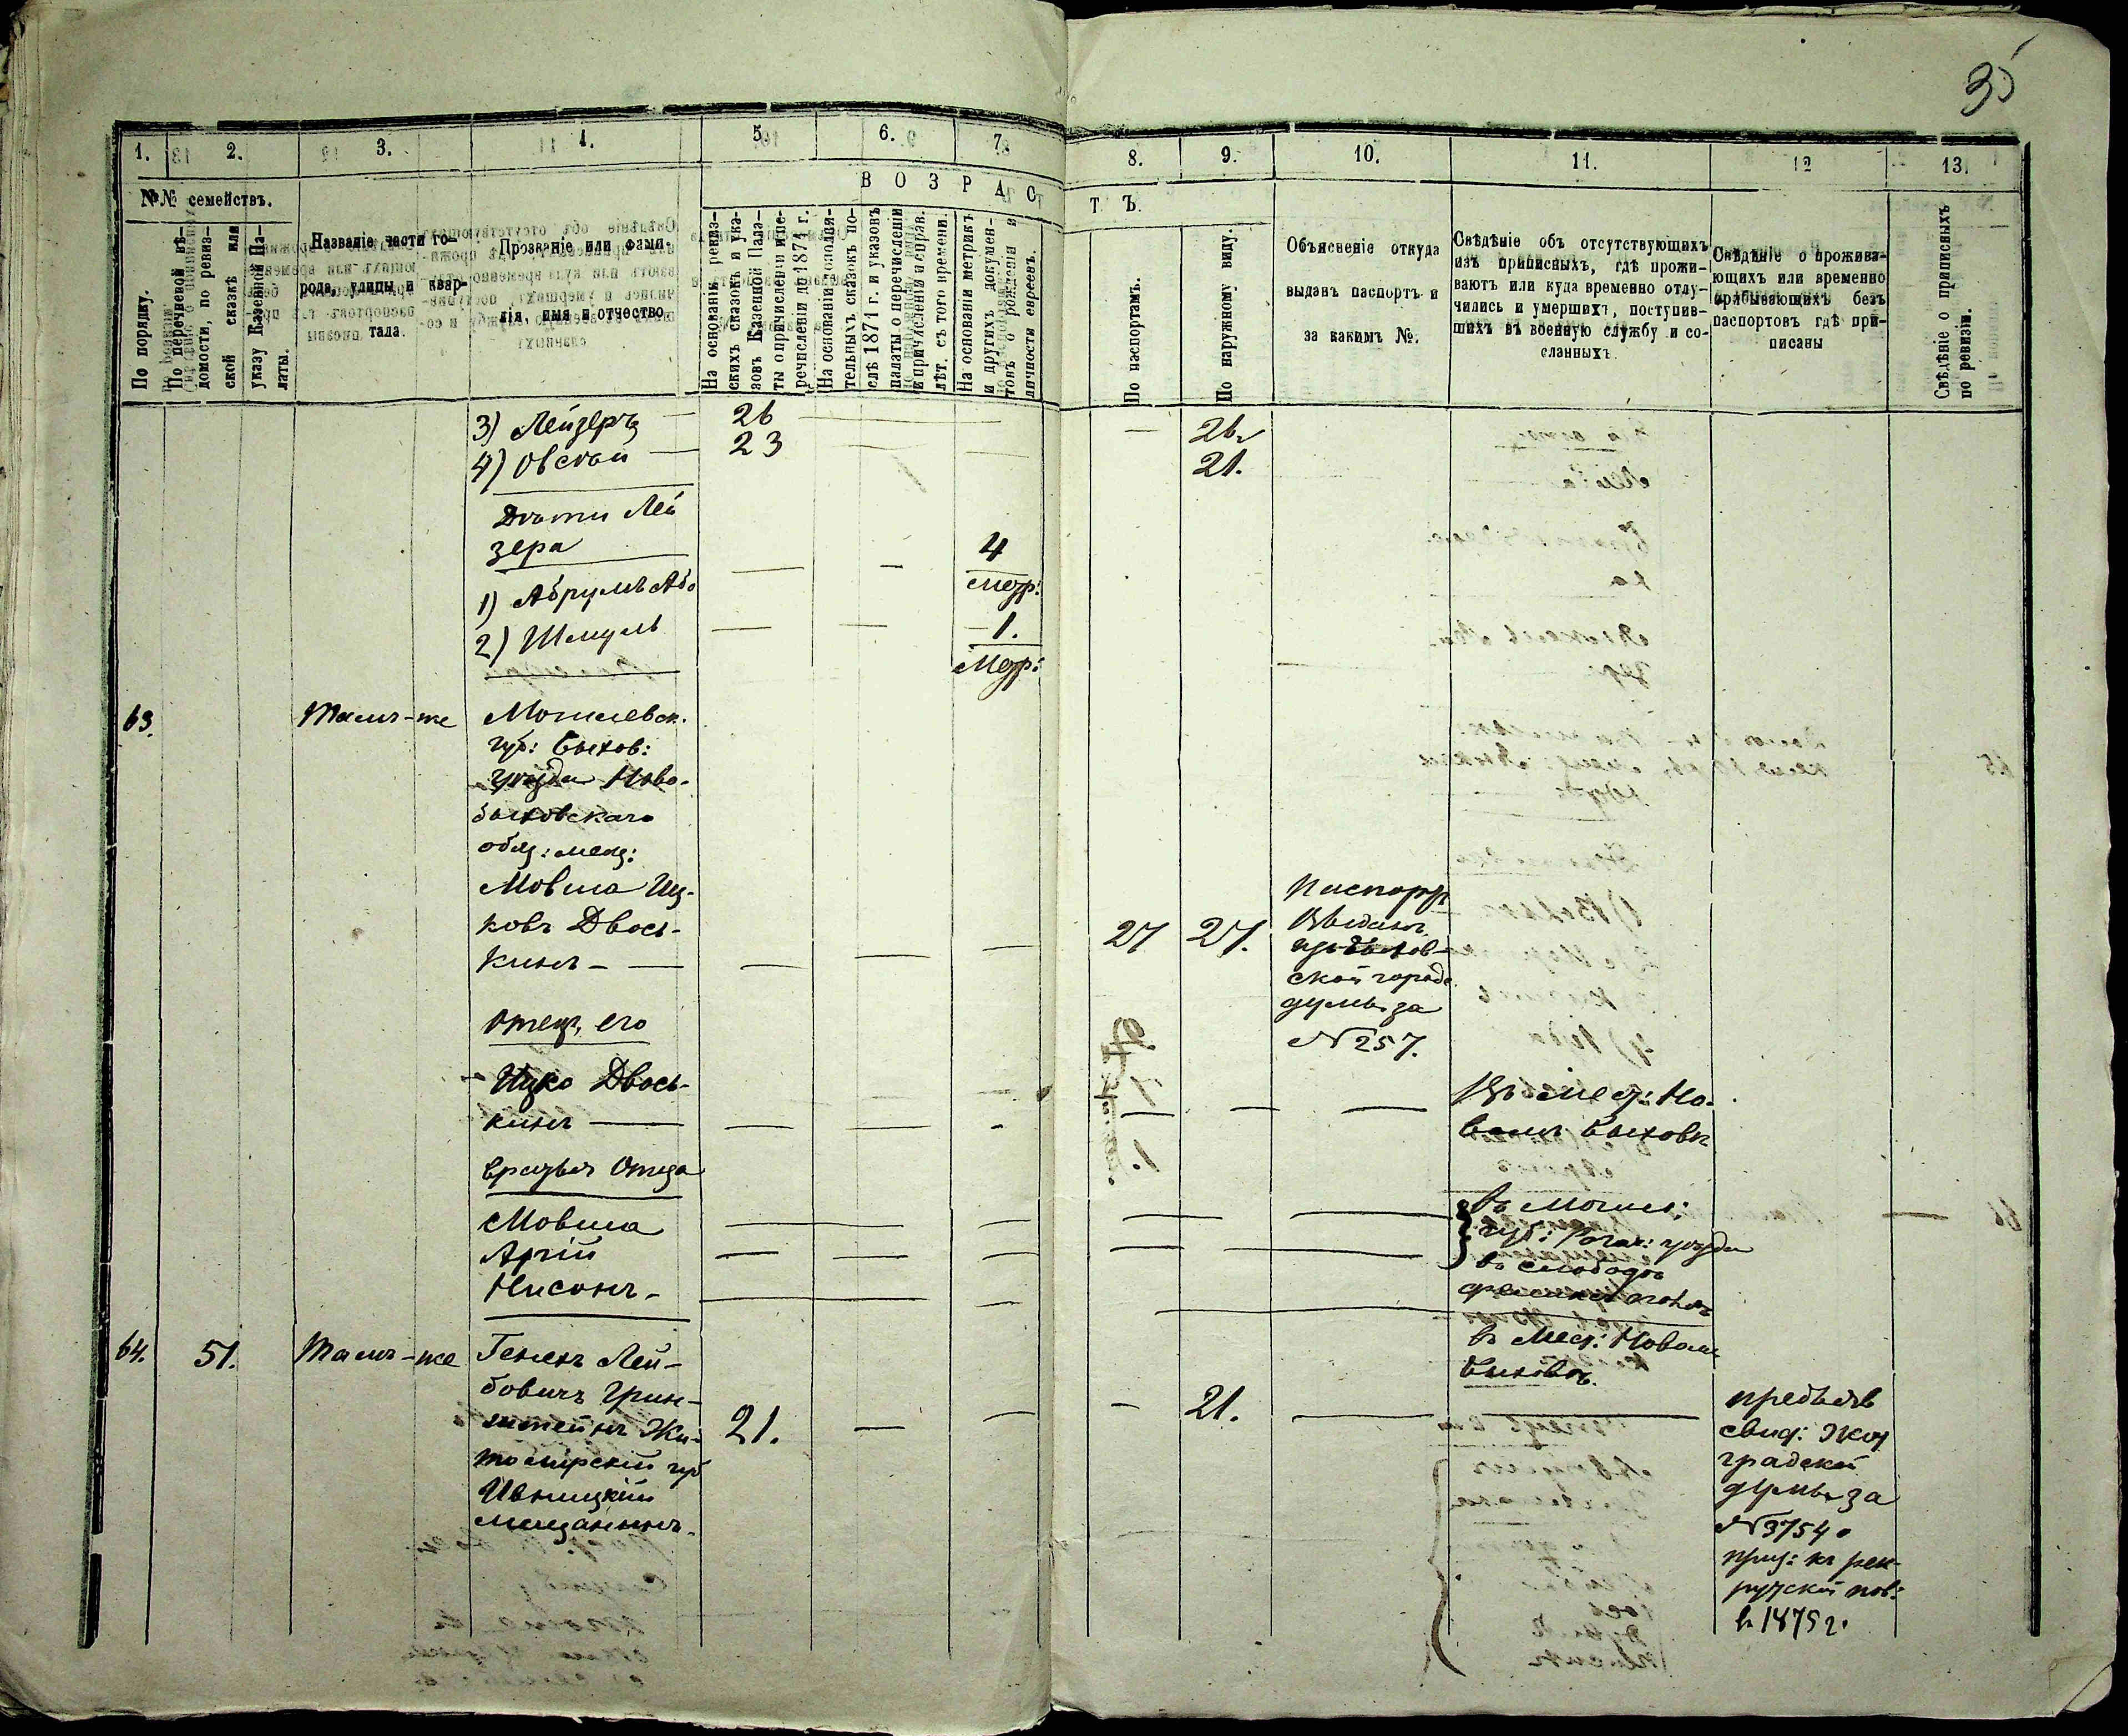 35
1. 2. 3. 4. 5. 6. 7. 8. 9. 10. 11. 12 13.
№№ семействъ.
По порядку.
По перечневой вѣ-
домости, по ревиз-
ской сказкѣ или
указу Казенной Па-
латы.
Названіе части го-
рода, улицы и квар-
тала.
Прозваніе или фами-
лія, имя и отчество.
ВОЗРАСТЪ.
На основаніи ревиз-
скихъ сказокъ и ука-
зовъ Казенной Пала-
ты о причисленіи и пе-
речисленіи до 1874 г.
На основаніи дополни-
тельныхъ сказокъ по-
слѣ 1874 г. и указовъ
палаты о перечисленіи
и причисленіи и справ.
лѣт. съ того времени.
На основаніи метрикъ
и другихъ докумен-
товъ о рожденіи и
личности евреевъ.
По паспортамъ.
По наружному виду.
Объясненіе откуда
выданъ паспортъ и
за какимъ №.
Свѣдѣніе объ отсутствующихъ
изъ приписныхъ, гдѣ прожи-
ваютъ или куда временно отлу-
чились и умершихъ, поступив-
шихъ въ военную службу и со-
сланныхъ.
Свѣдѣніе о прожива-
ющихъ или временно
пребывающихъ безъ
паспортовъ гдѣ при-
писаны
Свѣдѣніе о приписныхъ
по ревизіи.
3) Лейзеръ — 26 — 26
4) Овсѣй — 23 — 21.
Дѣти Лей
зера
1) Абрумъ Або — — 4
Метр:
2) Шмуль — — 1.
Метр:
63. Тамъ-же Могилевск.
губ: Быхов:
уѣзда Ново-
быховскаго
общ: мещ:
Мовша Иц-
ковъ Двось-
кинъ — — — — 27 27.
Паспортъ
выданъ
изъ Быхов-
ской городс
думы за
№ 257.
Отецъ его
Ицко Двось-
кинъ — — — — — — —
Въ мес: Но-
вомъ Быховѣ
Братья Отца
Мовша — — — —
Арій — — — —
Нисонъ — — —
въ Могил:
губ: Рогач: уѣзда
въ слободѣ
въ Мес: Новомъ
Быховѣ.
64. 51. Тамъ-же Генехъ Лей-
бовичъ Грин-
штейнъ Жи- 21. — — — 21. — —
томірскій губ
Ивницкій
Мещанинъ.
предъявъ
свид: Жит
градской
думы за
№ 3754 о
приз: къ рек-
рутской пов:
въ 1875 г.